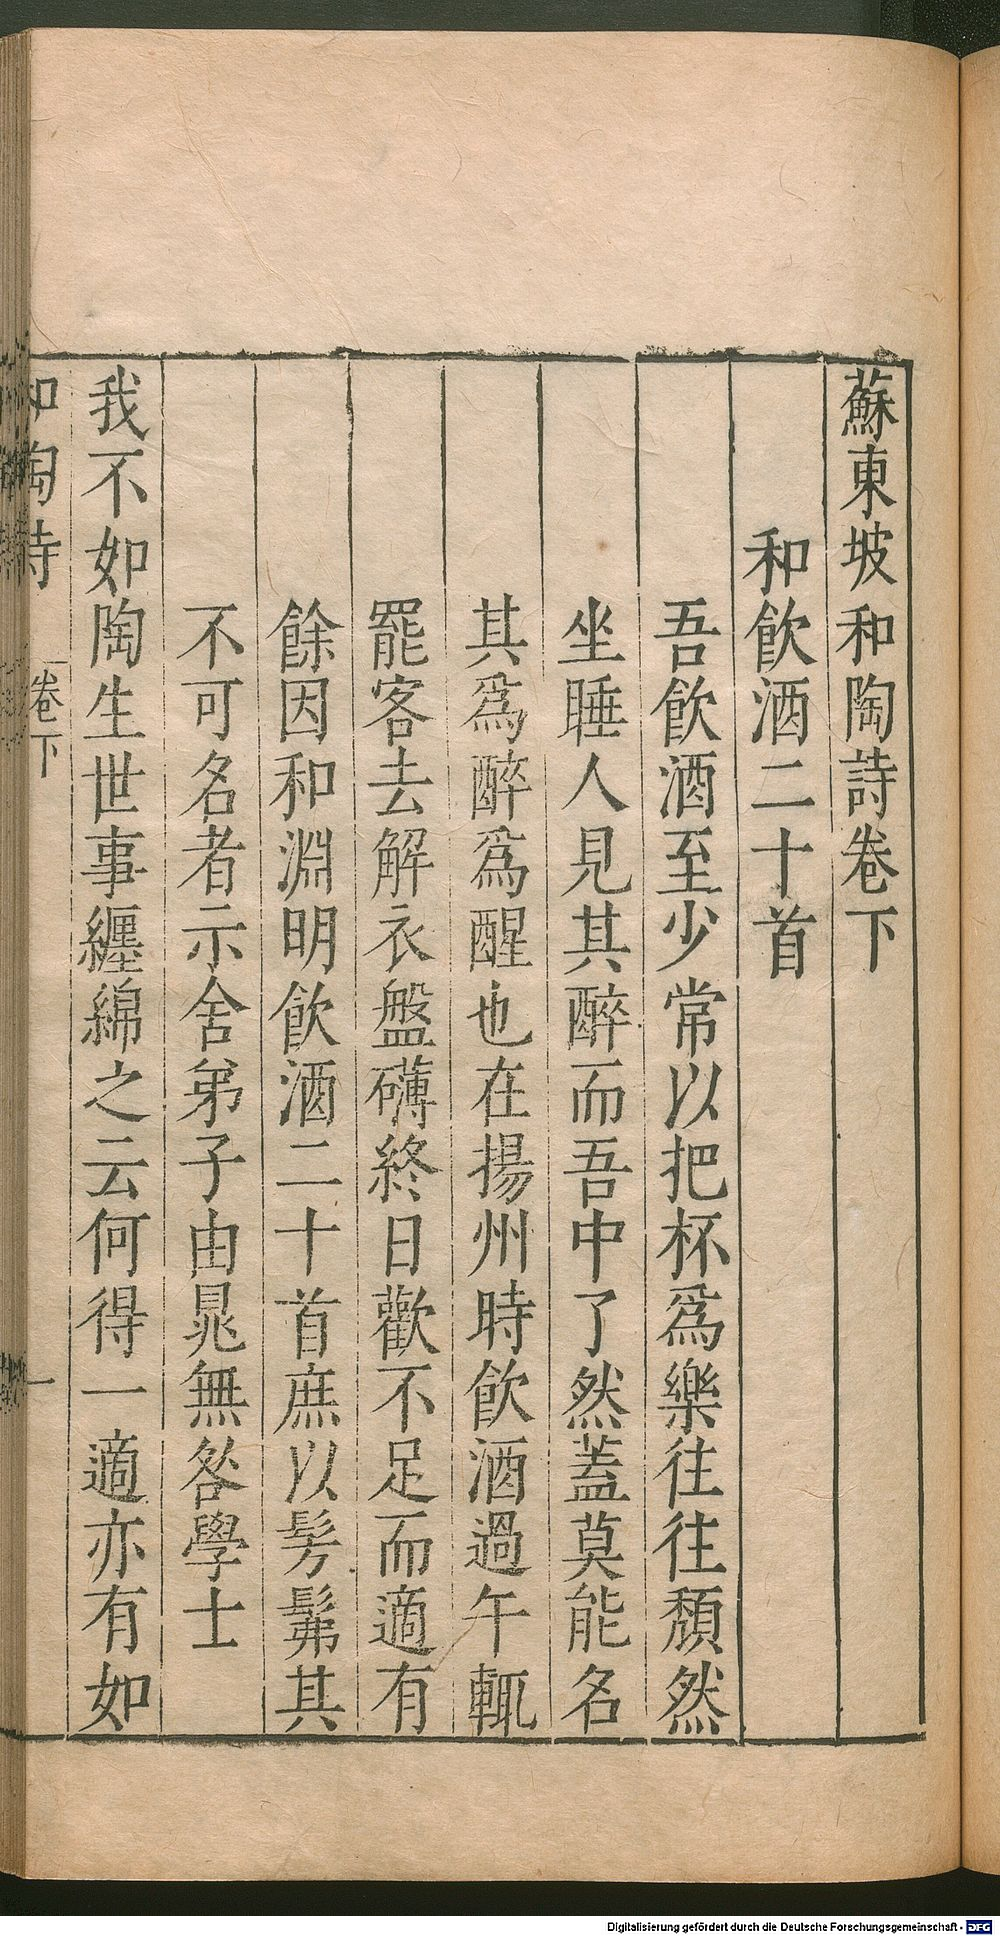 蘇東坡和陶詩卷下
和飮酒二十首
吾飮酒至少常以把杯爲樂往往頹然
坐睡人見其醉而吾中了然蓋莫能名
其爲醉爲醒也在揚州時飮酒過午輒
罷客去解衣盤礴終日歡不足而適有
餘因和淵明飮酒二十首庶以髣髴其
不可名者示舍弟子由晁無咎學士
我不如陶生世事纏綿之云何得一適亦有如
和陶詩 卷下 一
Digitalisierung gefördert durch die Deutsche Forschungsgemeinschaft - DFG